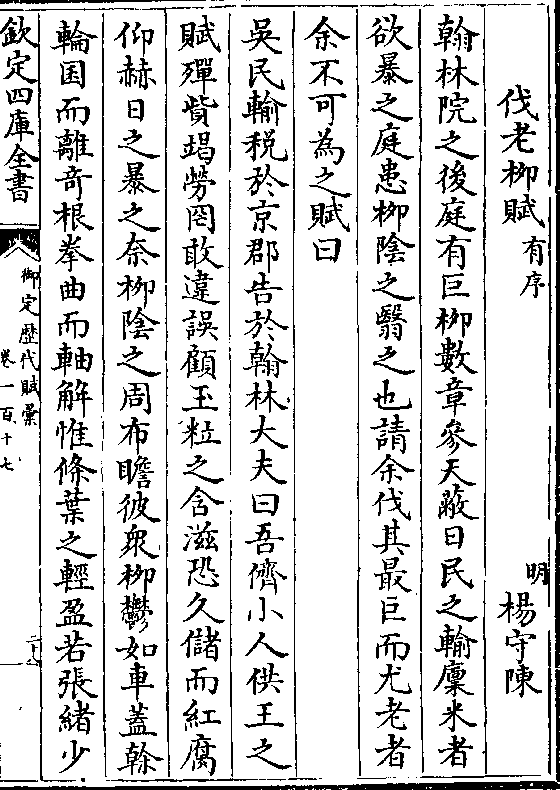 伐老柳賦有序
明楊守陳
翰林院之後庭有巨柳數章參天蔽日民之輸廩米者
欲暴之庭患柳陰之翳之也請余伐其最巨而尤老者
余不可為之賦曰
吳民輸税於京郡告於翰林大夫曰吾儕小人供王之
賦殫貲竭勞罔敢違誤顧玉粒之含滋恐久儲而紅腐
仰赫日之暴之奈柳陰之周布瞻彼衆柳鬱如車蓋榦
輪囷而離竒根拳曲而軸解惟條葉之輕盈若張緒少
欽定四庫全書
御定歴代賦彙
卷一百十七